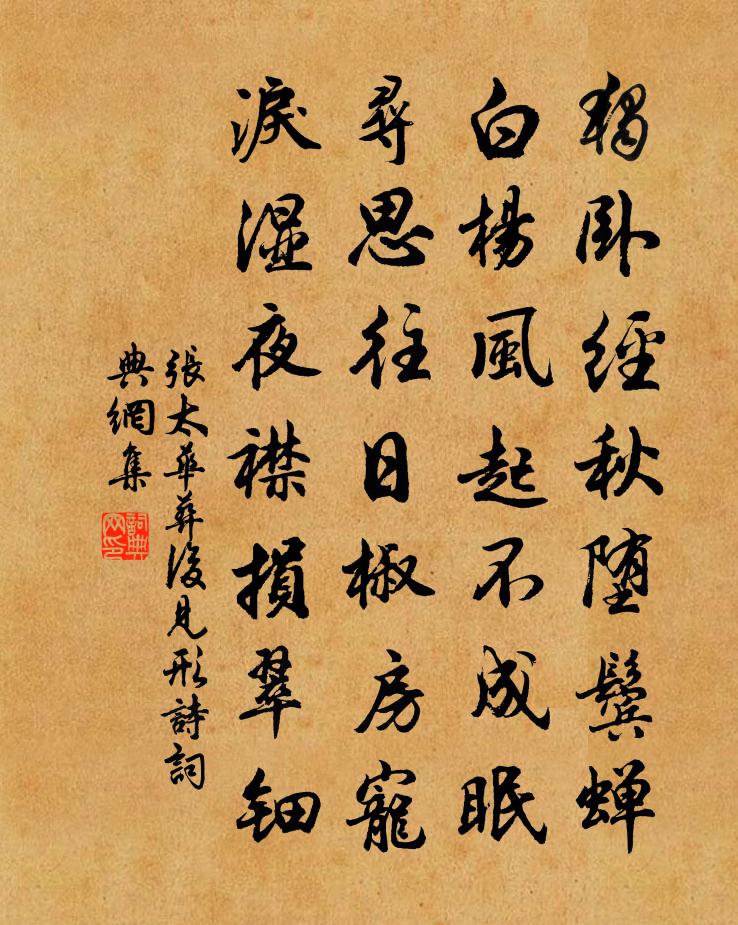 獨卧經秋堕鬢蝉
白楊風起不成眠
尋思往日椒房寵
淚濕夜襟損翠钿
張太華葬後見形詩詞
典網集
詞典
网印